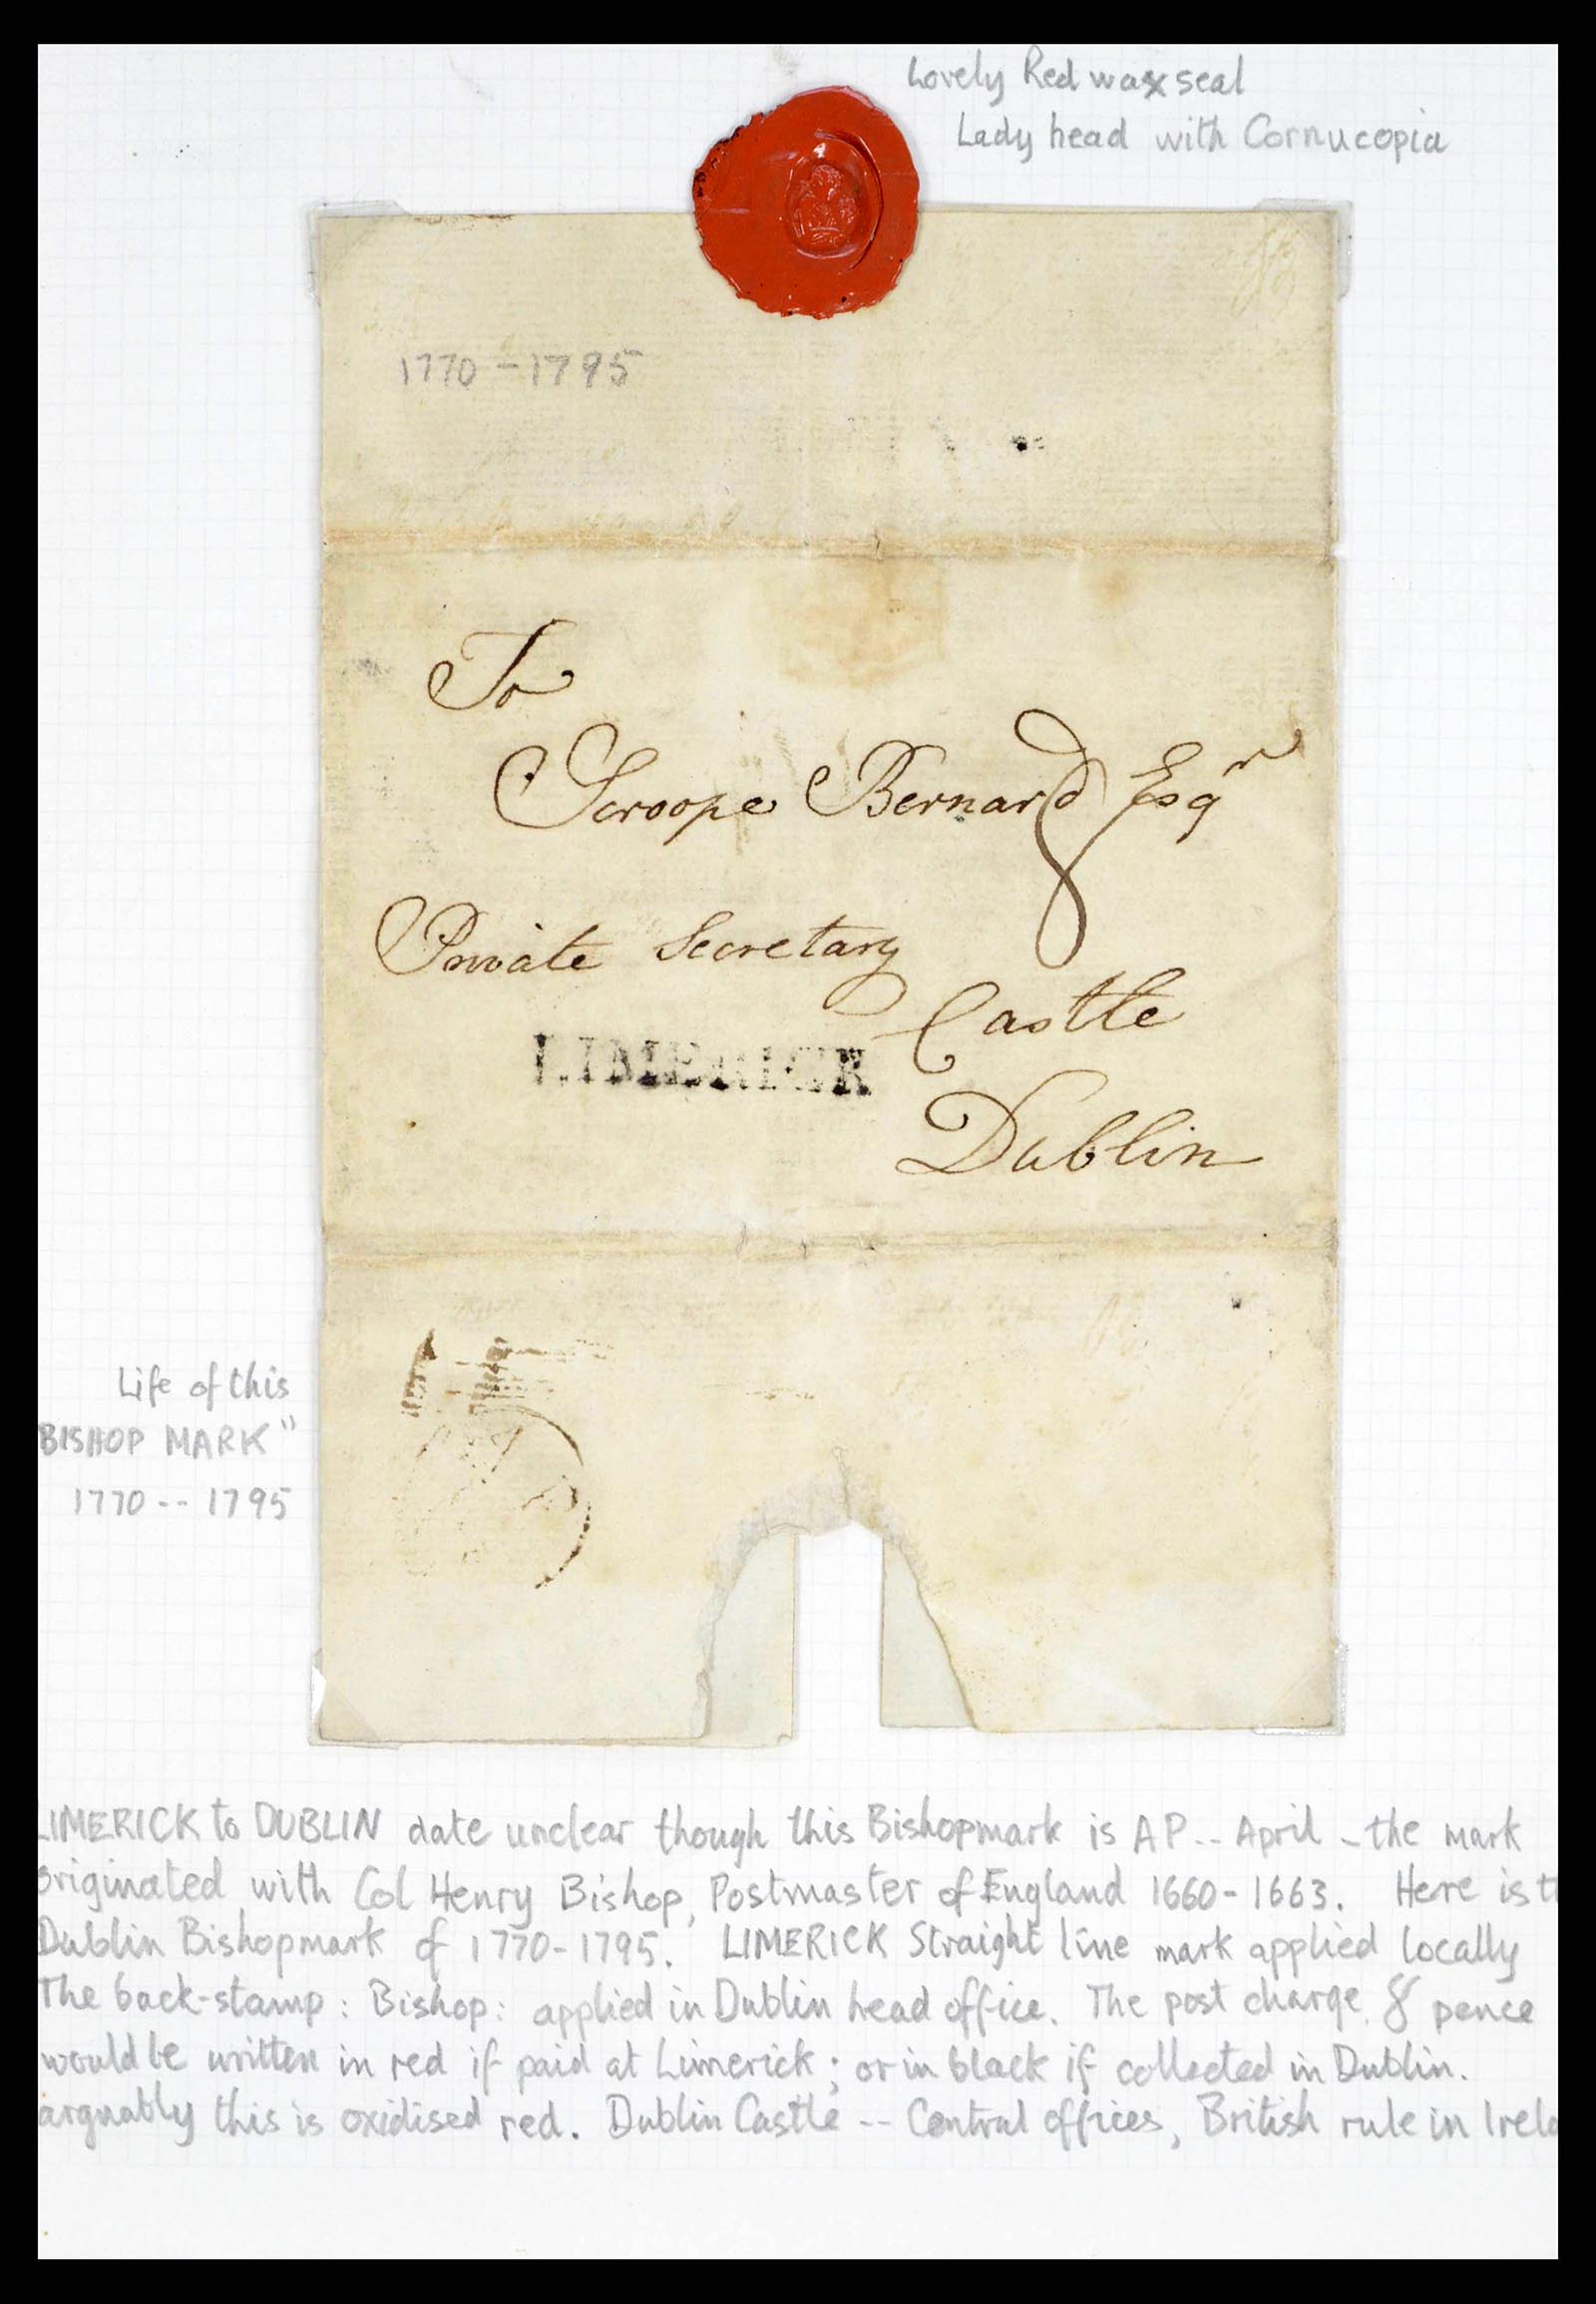 Lovely Red wax seal
Lady head with Cornucopia
1770 - 1795
To
Scroope Bernard Esqr
8
Private Secretary
Castle
LIMERICK
Dublin
Life of this
BISHOP MARK"
1770 -- 1795
LIMERICK to DUBLIN date unclear though this Bishopmark is AP -- April - the mark
originated with Col Henry Bishop, Postmaster of England 1660 - 1663. Here is
Dublin Bishopmark of 1770 - 1795. LIMERICK Straight line mark applied locally
The back-stamp : Bishop : applied in Dublin head office. The post charge 8 pence
would be written in red if paid at Limerick ; or in black if collected in Dublin.
arguably this is oxidised red. Dublin Castle -- Central offices, British rule in Irela